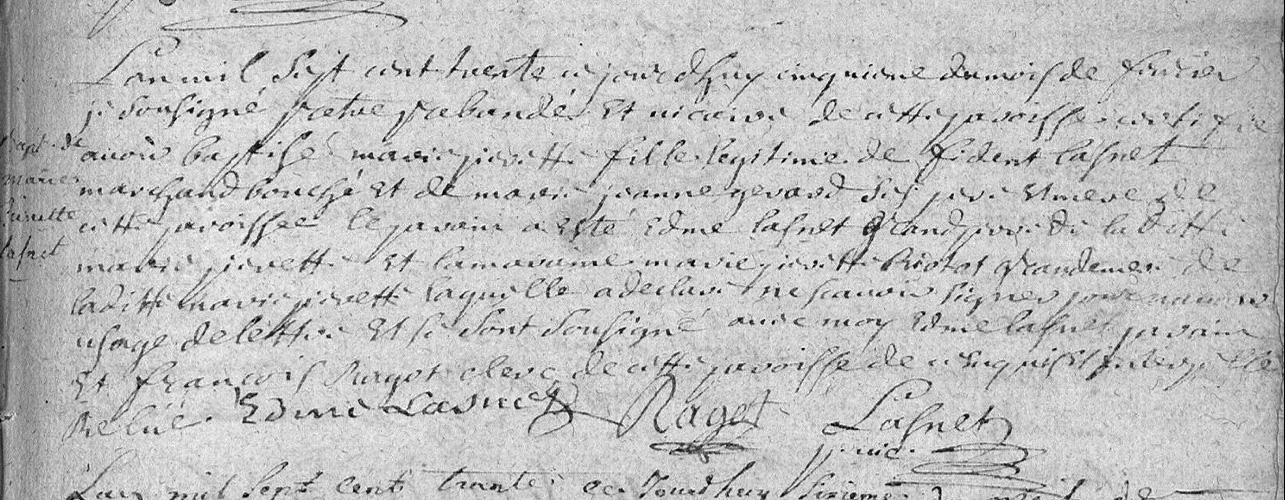 Lan mil sept cent trente ce jourdhuy cinquieme du mois de fevrier
je soussigné pretre et vicaire de cette paroisse certifie
avoir baptisé marie pierette fille legitime de fident lasnet
marchand bouché et de marie jeanne gerard ses pere et mere de
cette paroisse le parain a esté Edme lasnet grand pere de la ditte
marie pierette et la maraine marie pierette Riotot grandemere de
laditte marie pierette laquelle a declaré ne scavoir signer pour
usage de lettre et se sont soussigné avec moy Edme lasnet parain
et françois Ragot clerc de cette paroisse de ce enquis et interpellé
Relué
Bapt. de
marie
pierette
lasnet
Edme Lasnet Ragot Lasnet
Lan mil sept cent trante ce Jourdhuy sixieme